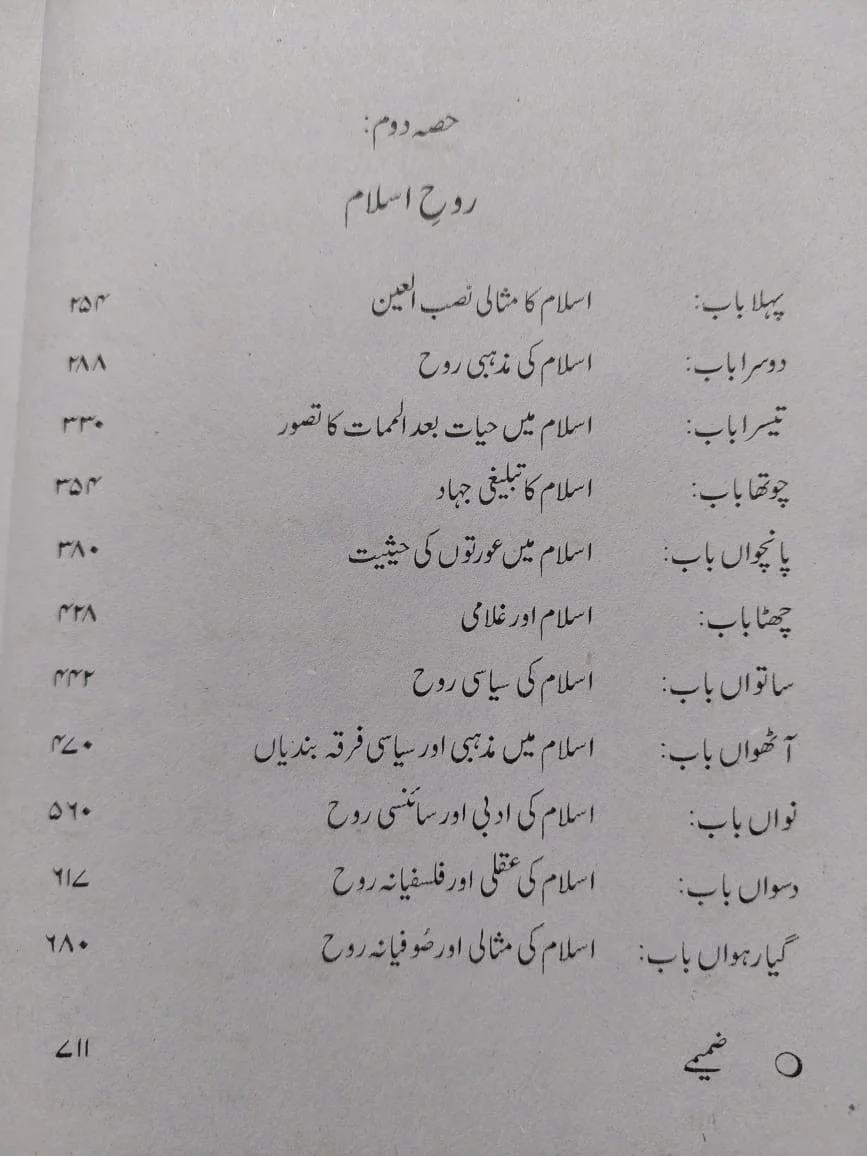 حصہ دوم:
روحِ اسلام
پہلا باب: اسلام کا مثالی نصب العین ۲۵۴
دوسرا باب: اسلام کی مذہبی روح ۲۸۸
تیسرا باب: اسلام میں حیات بعد الممات کا تصور ۳۳۰
چوتھا باب: اسلام کا تبلیغی جہاد ۳۵۴
پانچواں باب: اسلام میں عورتوں کی حیثیت ۳۸۰
چھٹا باب: اسلام اور غلامی ۴۲۸
ساتواں باب: اسلام کی سیاسی روح ۴۴۲
آٹھواں باب: اسلام میں مذہبی اور سیاسی فرقہ بندیاں ۴۷۰
نواں باب: اسلام کی ادبی اور سائنسی روح ۵۶۰
دسواں باب: اسلام کی عقلی اور فلسفیانہ روح ۶۱۷
گیارہواں باب: اسلام کی مثالی اور صُوفیانہ روح ۶۸۰
ضمیمے ۷۱۱